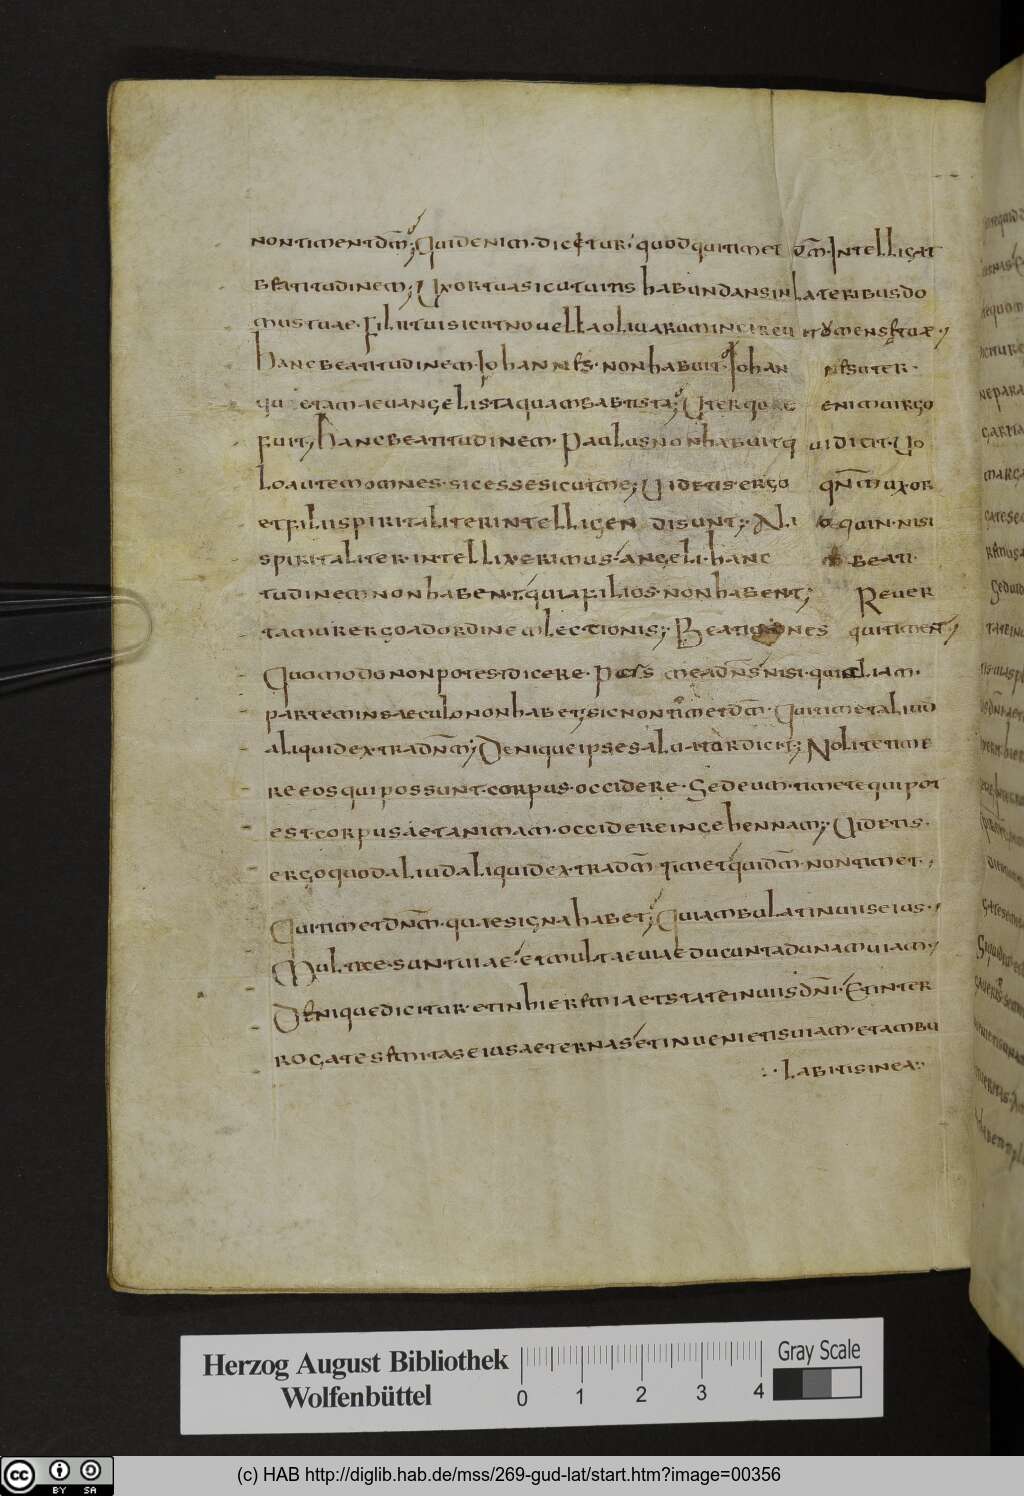 non timent dm; Quid enim dicetur quod qui timet dm Intelligat
beatitudinem; Uxor tua sicut uitis habundans in lateribus do
mus tuae. Filii tui sicut nouella oliuarum in circu mensae tuae;
hanc beatitudinem Iohannes non habuit. Iohan
euangelista quam babtista; enim uirgo
fuit; hanc beatitudinem Paulus non habuit qui dicit. Uo
lo autem omnes sic esse sicut me; Uidetis ergo qnm uxor
et filii spiritaliter intelligen disunt; Ali quin nisi
spiritaliter intellixerimus angeli hanc beati
tudinem non habent. quia filios non habent; Reuer
tamur ergo ad ordinem lectionis; Beati omnes qui timent;
Quomodo non potes dicere. Pars mea dns nisi qui aliam
partem in saeculo non habet; sic non timet dm. Qui timet aliud
aliquid extra dnm; Denique ipse saluator dicit; Nolite time
re eos qui possunt corpus occidere. Sed eum timete qui pot
est corpus aet animam occidere in gehennam; Uidetis
ergo quod aliud aliquid extra dm timet qui dm non timet;
Qui timet dnm. quae signa habet; Qui ambulat in uiis eius;
Multae sunt uiae. et multae uiae ducunt ad unam uiam;
Denique dicitur. et in hieremia et state in uiis dni. Et inter
rogate semitas eius aeternas et inuenietis uiam. et ambu
labitis in ea
Herzog August Bibliothek
Wolfenbüttel
0 1 2 3 4
Gray Scale
cc BY SA
(c) HAB http://diglib.hab.de/mss/269-gud-lat/start.htm?image=00356